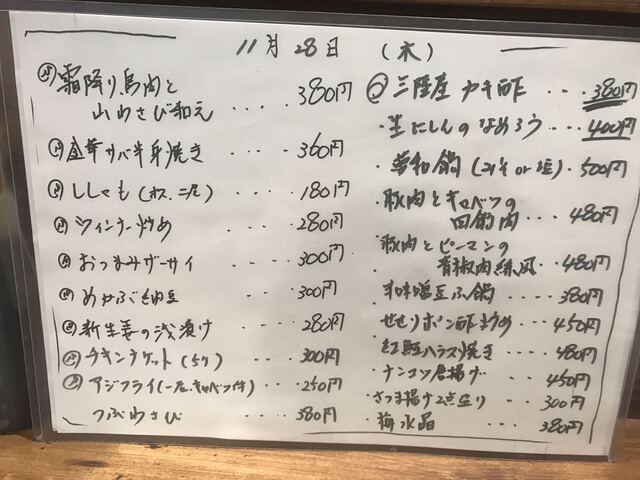 11月28日 (木)
霜降り鳥肉と
山わさび和え ・・・ 380円
金華サバ半身焼き ・・・・ 360円
ししゃも(オス、二尾) ・・・ 180円
ウィンナー炒め ・・・・ 280円
おつまみザーサイ ・・・・ 300円
めかぶ納豆 ・・・・ 300円
新生姜の浅漬け ・・・・ 280円
チキンナゲット(5ケ) ・・・ 300円
アジフライ(一尾、キャベツ付) ・・・ 250円
つぶわさび ・・・・ 380円
三陸産 カキ酢 ・・・・ 380円
・生にしんのなめろう ・・・・ 400円
・ 鍋(みそ or 塩) 500円
・豚肉とキャベツの
回鍋肉 ・・・ 480円
・豚肉とピーマンの
青椒肉絲風 ・・・ 480円
・ 塩豆ふ鍋 ・・・・ 380円
せせりポン酢炒め ・・・ 450円
紅鮭ハラス焼き ・・・・ 480円
ナンコツ唐揚げ ・・・ 450円
さつま揚げ2点盛り ・・・ 300円
梅水晶 ・・・・ 380円